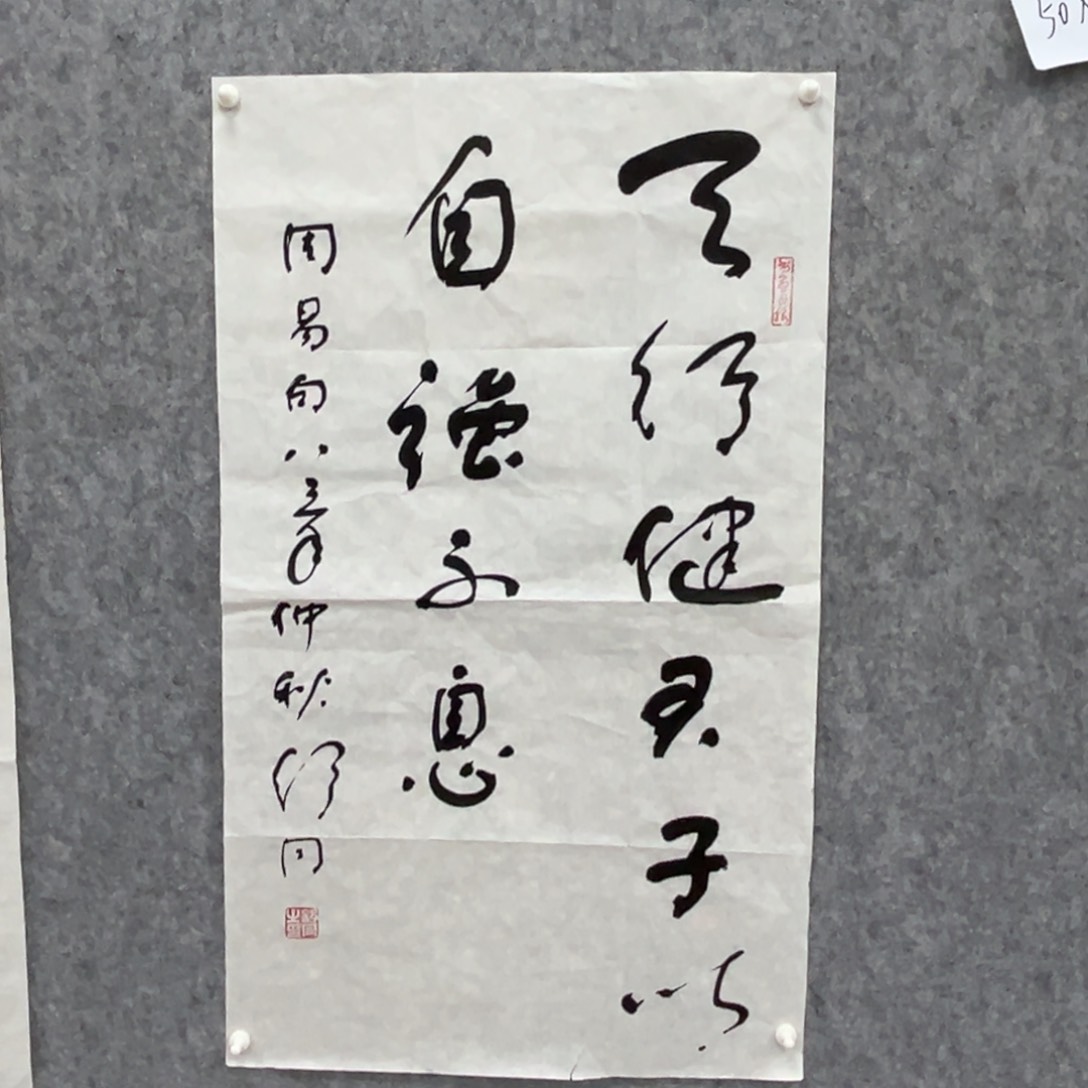 天行健君子以
自强不息
周易句八三年仲秋舒同
50